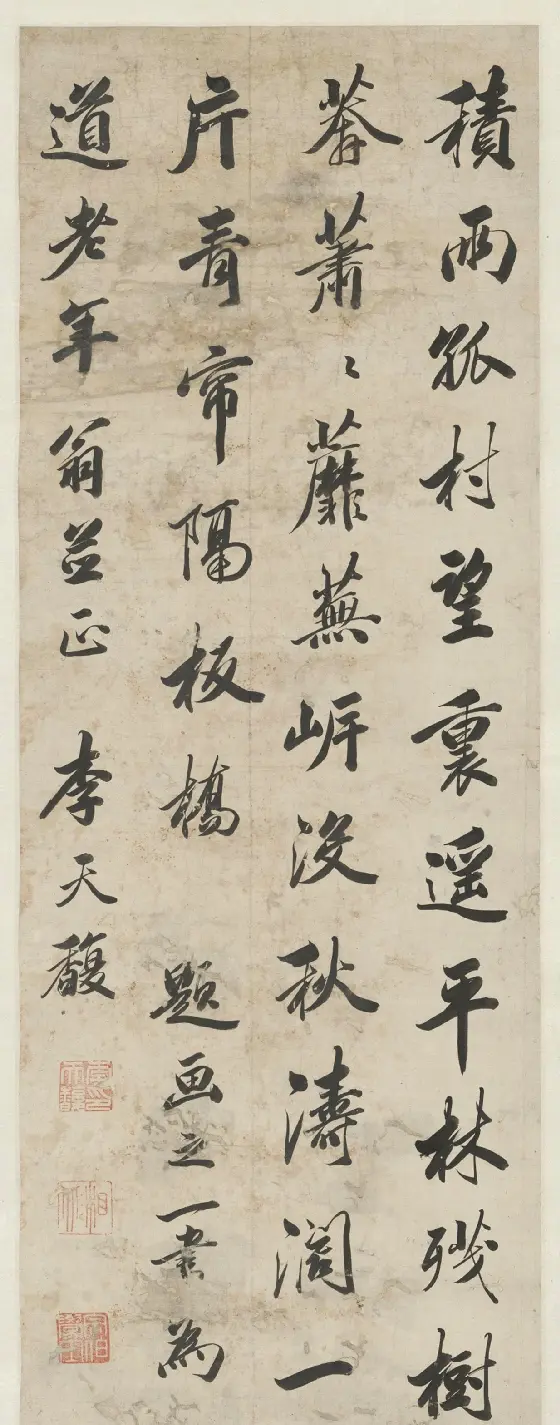 積雨孤村望裏遥平林殘樹
莽蕭〻蘼蕪岸没秋濤濶一
片青帘隔板橋 題画之一書為
道老年翁並正 李天馥